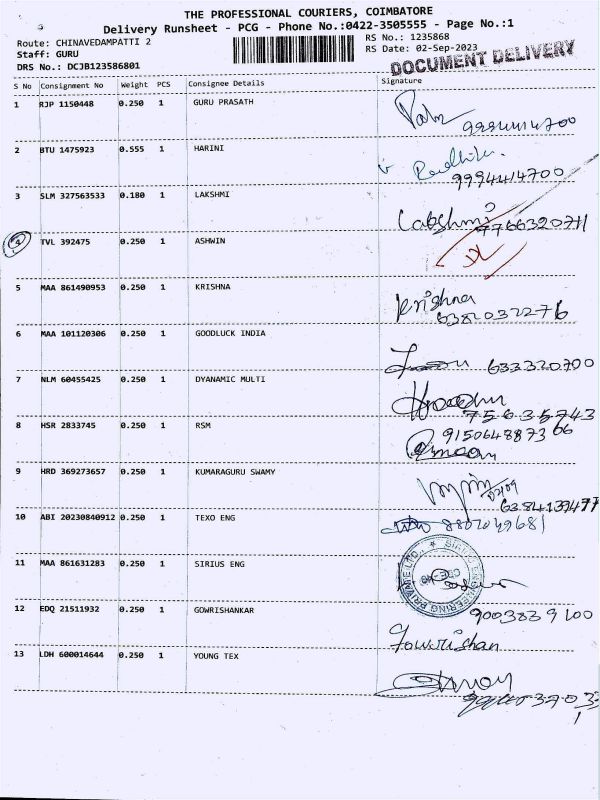 THE PROFESSIONAL COURIERS, COIMBATORE
Delivery Runsheet - PCG - Phone No.:0422-3505555 - Page No.:1
Route: CHINAVEDAMPATTI 2
RS No.: 1235868
Staff: GURU
RS Date: 02-Sep-2023
DRS No.: DCJB123586801
DOCUMENT DELIVERY
S No Consignment No Weight PCS Consignee Details Signature
1 RJP 1150448 0.250 1 GURU PRASATH
2 BTU 1475923 0.555 1 HARINI
9994414700
3 SLM 327563533 0.180 1 LAKSHMI
Lakshmi
7766320711
4 TVL 392475 0.250 1 ASHWIN
5 MAA 861490953 0.250 1 KRISHNA
Krishna
6382032276
6 MAA 101120306 0.250 1 GOODLUCK INDIA
633320700
7 NLM 60455425 0.250 1 DYANAMIC MULTI
75635743
8 HSR 2833745 0.250 1 RSM
9 HRD 369273657 0.250 1 KUMARAGURU SWAMY
6384139477
10 ABI 20230840912 0.250 1 TEXO ENG
11 MAA 861631283 0.250 1 SIRIUS ENG
SIRIUS ENGINEERING PRIVATE LTD.,
12 EDQ 21511932 0.250 1 GOWRISHANKAR
9003839100
Gowrishan
13 LDH 600014644 0.250 1 YOUNG TEX